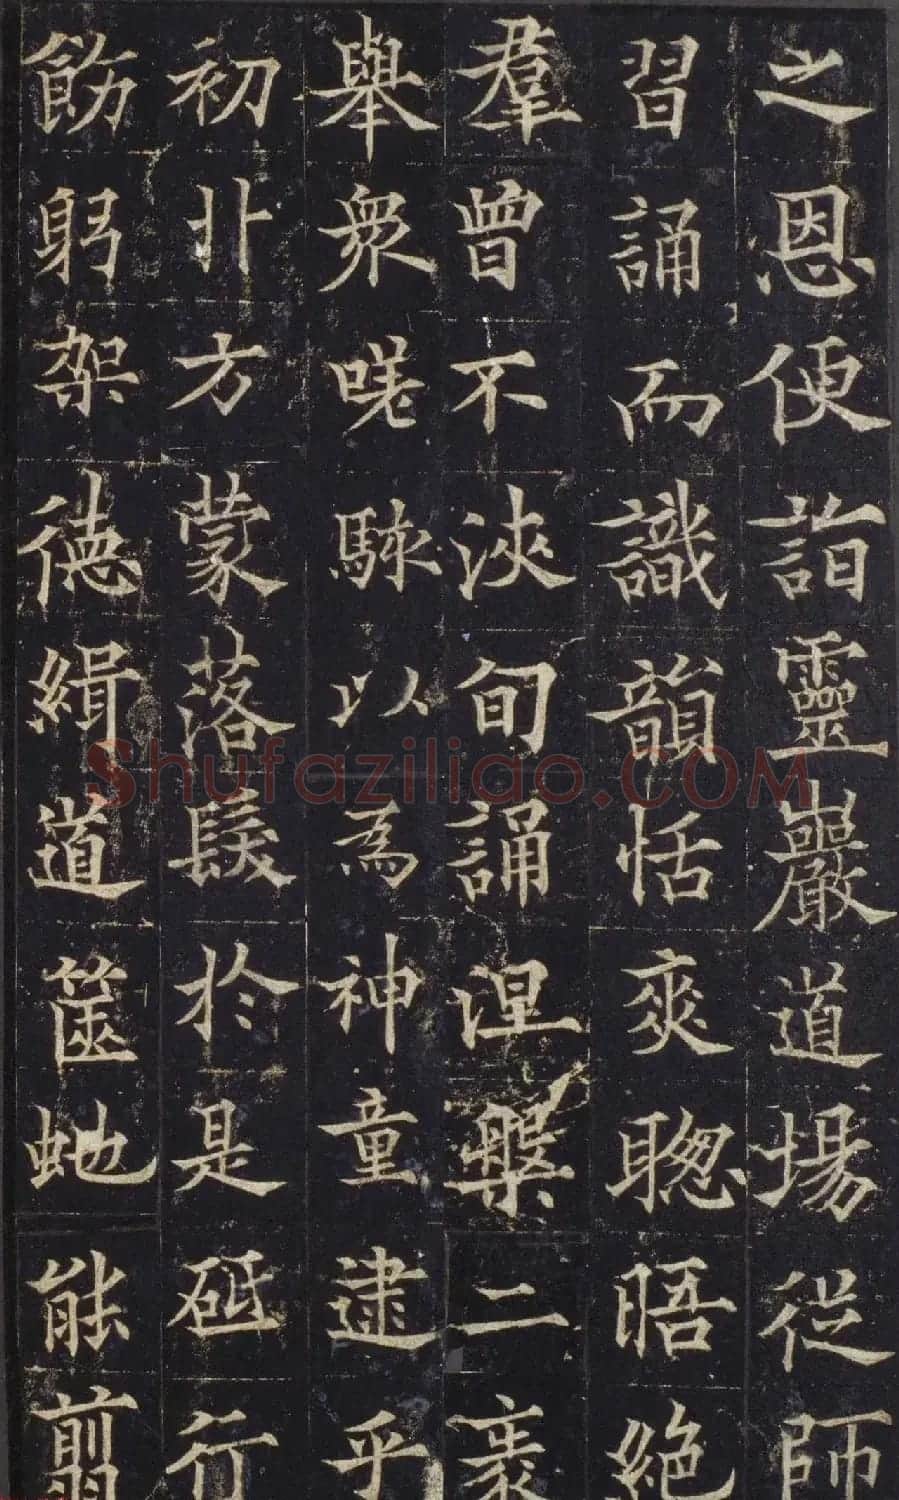 之恩便詣靈巖道場從師
習誦而識韻恬爽聰晤絕
羣曾不浹旬誦涅槃二袠
舉衆嗟駭以為神童逮乎
初丱方蒙落髮於是砥行
飭躬架德緝道篋虵能翦
Shufaziliao.COM